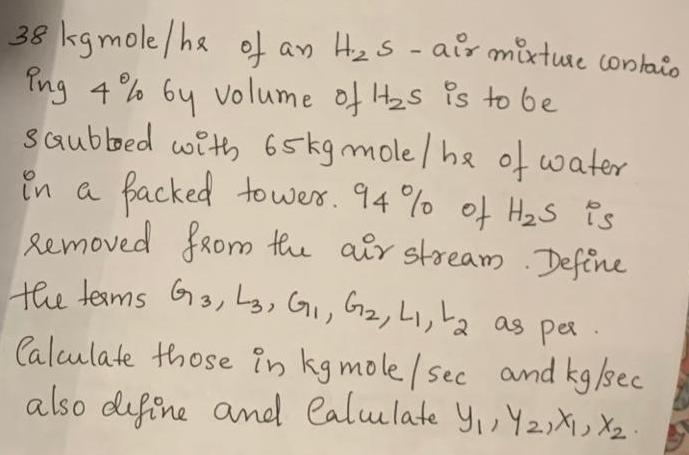 38 kgmole/hr of an H₂S - air mixture contain
ing 4% by volume of H₂S is to be
scrubbed with 65kgmole/hr of water
in a packed tower. 94% of H₂S is
removed from the air stream. Define
the terms G3, L3, G1, G2, L1, L2 as per.
Calculate those in kgmole/sec and kg/sec
also define and Calculate Y1, Y2, X1, X2.